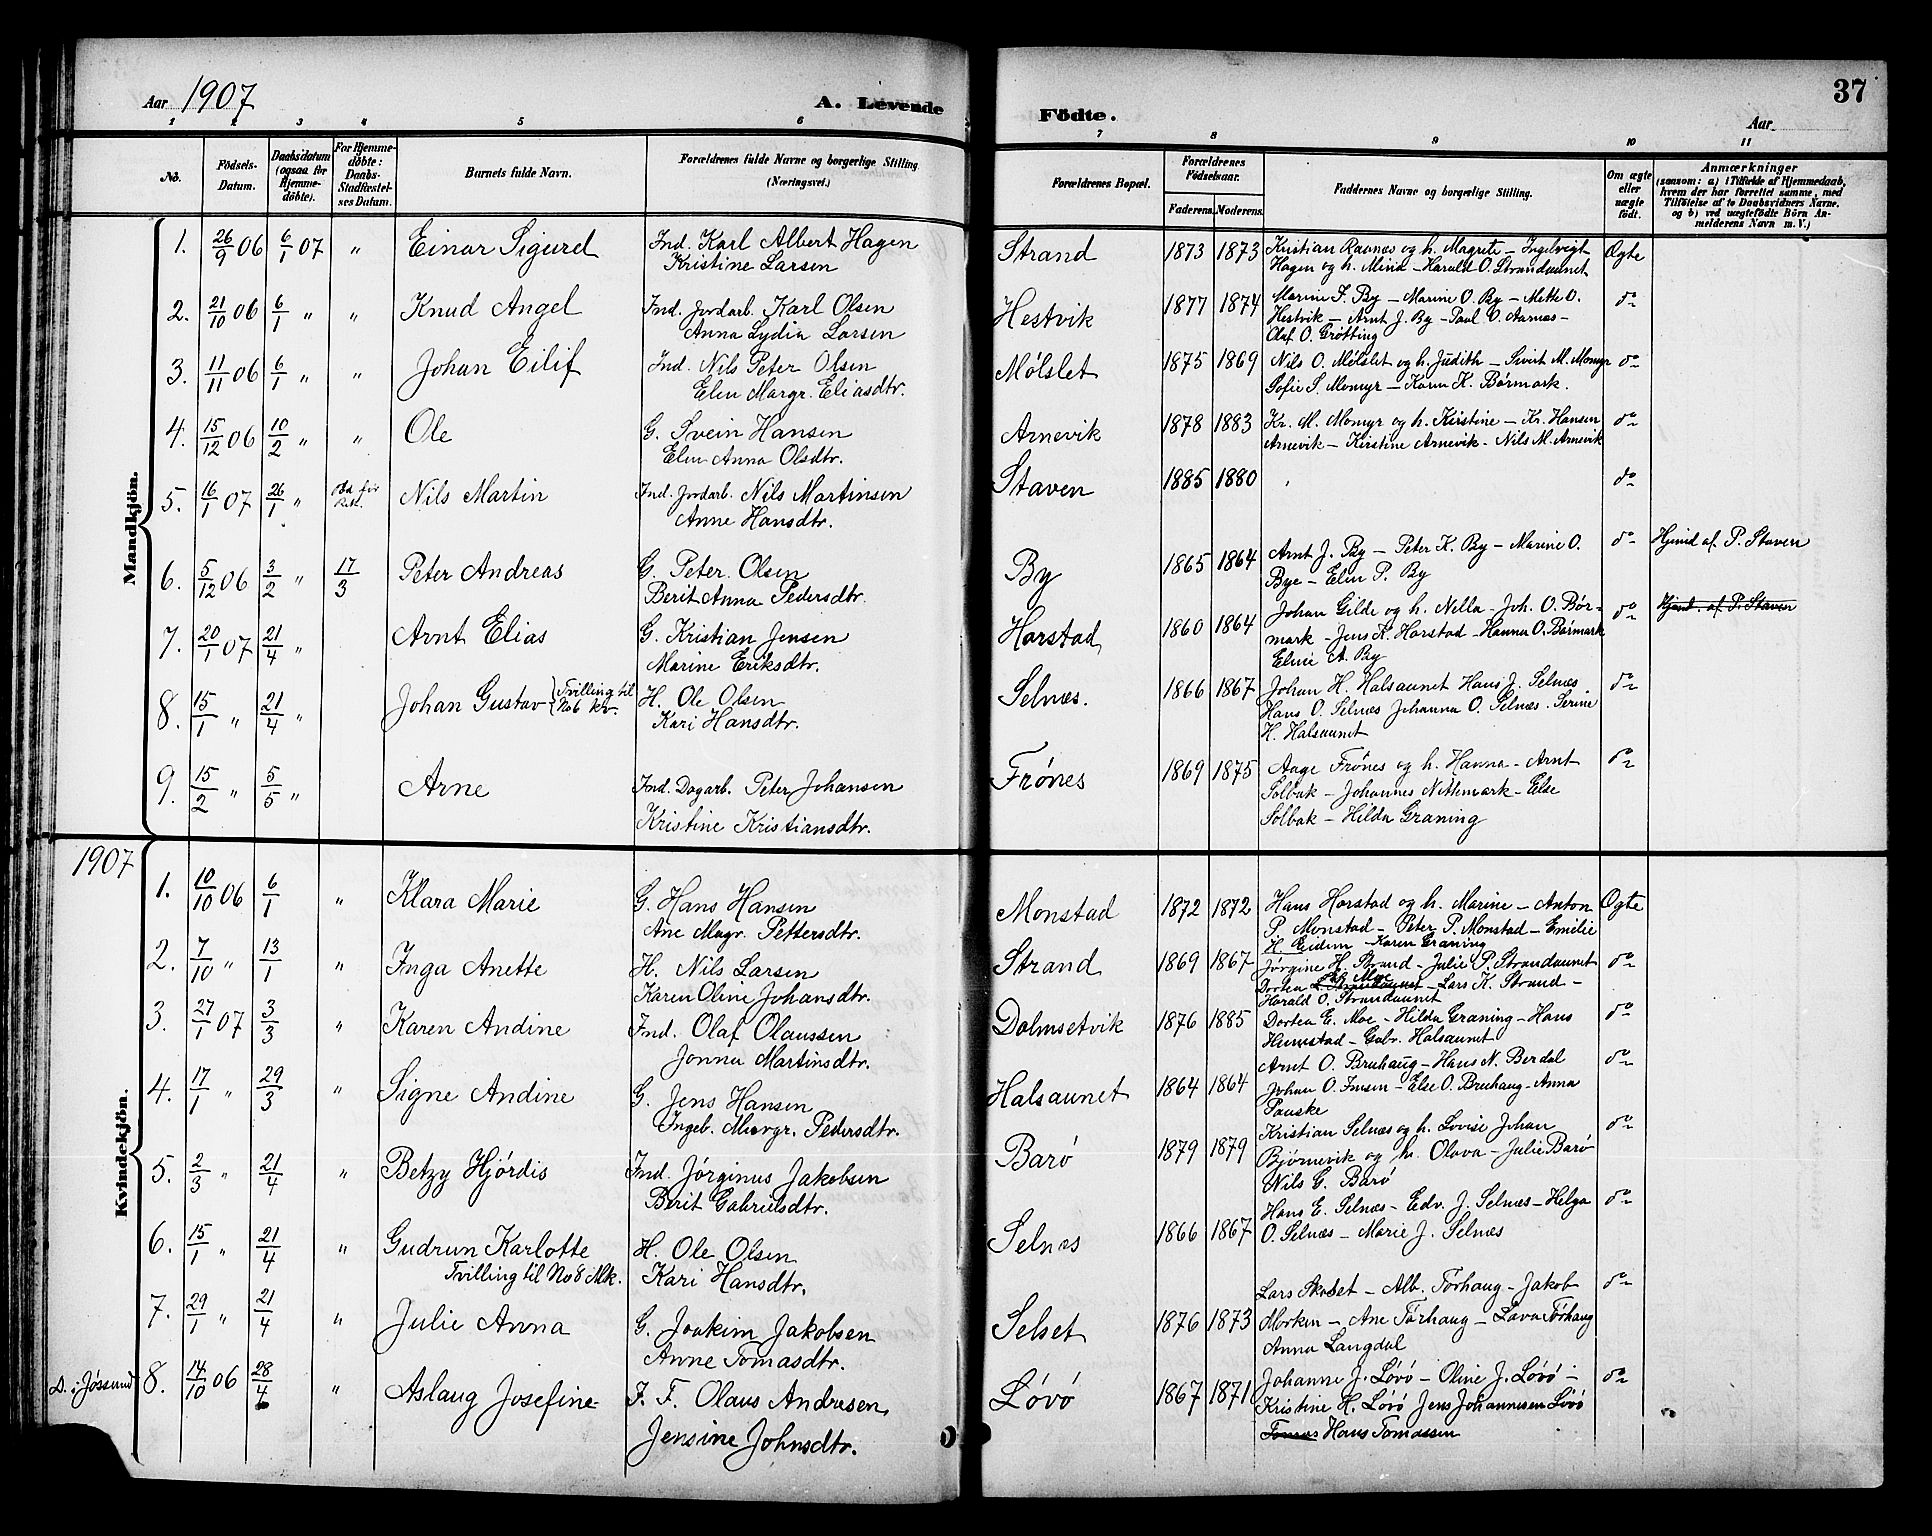 Aar 1907
A. Levende
Födte.
37
Aar
1 2 3 4 5 6 7 8 9 10 11
No.
Födsels-
Datum.
Daabsdatum
(ogsaa for
Hjemme-
döbte).
For Hjemme-
döbte:
Daabs-
Stadfæstel-
ses Datum.
Barnets fulde Navn.
Forældrenes fulde Navne og borgerlige Stilling
(Næringsvei.)
Forældrenes Bopæl.
Forældrenes
Födselsaar.
Faderens. Moderens.
Faddernes Navne og borgerlige Stilling.
Om ægte
eller
uægte
födt.
Anmærkninger
(saasom: a) i Tilfælde af Hjemmedaab,
hvem der har forrettet samme, med
Tilföielse af to Daabsvidners Navne.
og b) ved uægtefödte Börn An-
melderens Navn m. V.)
Mandkjön.
1. 26/9 06 6/1 07 " Einar Sigurd Ind. Karl Albert Hagen
Kristine Larsen
Strand 1873 1873 Kristian Raanes og h. Magrete - Ingelvigt
Hagen og h. Mina - Harald O. Strandaunet
Ogte
2. 21/10 06 6/1 " " Knud Angel Ind. Jordarb. Karl Olsen
Anna Lydia Larsen
Hestvik 1877 1874 Marine F. By - Marine O. By - Mette O.
Hestvik - Arnt J. By - Paul O. Aarnes -
Olaf O. Grötting
do
3. 11/11 06 6/1 " " Johan Eilif Ind. Nils Peter Olsen
Elen Margr. Eliasdtr.
Mölslet 1875 1869 Nils O. Mölslet og h. Judith - Sivert M. Momyr
Sofie S. Momyr - Karen K. Börmark.
do
4. 15/12 06 10/2 " " Ole G. Svein Hansen
Elen Anna Olsdtr.
Arnevik 1878 1883 Kr. M. Momyr og h. Kirstine - Kr. Hansen
Arnevik - Kirstine Arnevik - Nils M. Arnevik
do
5. 16/1 07 26/1 " Nils Martin Ind. Jordarb. Nils Martinsen
Anne Hansdtr.
Staven 1885 1880 do
6. 5/12 06 3/2 " 17/3 Peter Andreas G. Peter Olsen
Berit Anna Pedersdtr.
By 1865 1864 Arnt J. By - Peter K. By - Marine O.
Bye - Elen P. By
do Hjmd af. P. Staven
7. 20/1 07 21/4 " Arnt Elias G. Kristian Jensen
Marine Eriksdtr.
Harstad 1860 1864 Johan Gilde og h. Nella - Joh. O. Bör-
mark - Jens K. Harstad - Hanna O. Börmark
Eline A. By
do Hjmd. af. P. Staven
8. 15/1 " 21/4 " Johan Gustav {Tvilling til
No 6 kv.
H. Ole Olsen
Kari Hansdtr.
Selnæs. 1866 1867 Johan H. Halsaunet Hans J. Selnæs.
Hans O. Selnæs Johanna O. Selnæs. Serine
H. Halsaunet
do
9. 15/2 " 5/5 " Arne Ind. Dagarb. Peter Johansen
Kristine Kristiansdtr.
Frönes 1869 1875 Aage Frönes og h. Hanna - Arnt
Solbak - Johannes Nittemark - Else
Solbak - Hilda Graning
do
1907
Kvindekjön.
1. 10/10 06 6/1 " Klara Marie G. Hans Hansen
Ane Magr. Pettersdtr.
Monstad 1872 1872 Hans Harstad og h. Marine - Anton
P. Monstad - Peter P. Monstad - Emelie
H. Eidem - Karen Graning
Ogte
2. 7/10 " 13/1 " Inga Anette H. Nils Larsen
Karen Oline Johansdtr.
Strand 1869 1867 Jörgine H. Strand - Julie P. Strandaunet
Dorten Moe - Lars K. Strand -
Harald O. Strandaunet
do
3. 27/1 07 3/3 " Karen Andine Ind. Olaf Olaussen
Jonna Martinsdtr.
Dolmsetvik 1876 1885 Dorten E. Moe - Hilda Graning - Hans
Humstad - Gabr. Halsaunet
do
4. 17/1 " 29/3 " Signe Andine G. Jens Hansen
Ingeb. Margr. Pedersdtr.
Halsaunet 1864 1864 Arnt O. Bruhaug - Hans N. Berdal
Johan O. Imsen - Else O. Bruhaug - Anna
Pauske
do
5. 2/3 " 21/4 " Betzy Hjördis Ind. Jörginus Jakobsen
Berit Gabrielsdtr.
Barö 1879 1879 Kristian Selnæs og h. Lovise Johan
Bjørnevik og h. Olava - Julie Barö
Nils G. Barö
do
6. 15/1 " 21/4 " Gudrun Karlotte
Tvilling til No 8 Mk.
H. Ole Olsen
Kari Hansdtr.
Selnæs 1866 1867 Hans E. Selnæs - Edv. J. Selnæs - Helga
O. Selnæs - Marie J. Selnæs
do
7. 29/1 " 21/4 " Julie Anna G. Joakim Jakobsen
Anne Tomasdtr.
Selset 1876 1873 Lars Skoset - Alb. Törhaug - Jakob
Morken - Ane Törhaug - Lava Törhaug
Anna Langdal
do
D. i Jössund 8. 14/10 06 28/4 " Aslaug Josefine F. F. Olaus Andresen
Jensine Johnsdtr.
Lövö 1867 1871 Johanne J. Lövö - Oline J. Lövö -
Kristine H. Lövö Jens Johannesen Lövö
Tomas Hans Tomassen
do